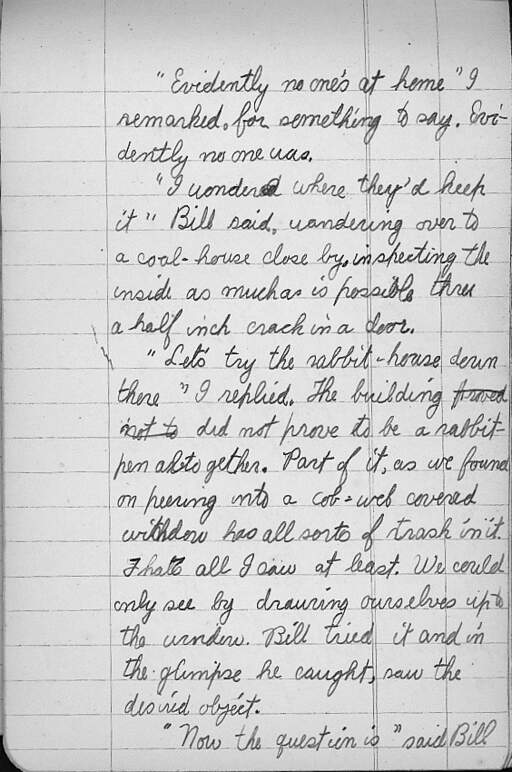 "Evidently no one's at home" I
remarked, for something to say. Evi-
dently no one was.
"I wonder where they'd keep
it" Bill said, wandering over to
a coal-house close by, inspecting the
inside as much as is possible thru
a half inch crack in a door.
"Let's try the rabbit-house down
there" I replied. The building proved
not to did not prove to be a rabbit-
pen altogether. Part of it, as we found
on peering into a cob-web covered
window has all sorts of trash in it.
Thats all I saw at least. We could
only see by drawing ourselves up to
the window. Bill tried it and in
the glimpse he caught, saw the
desired object.
"Now the question is" said Bill